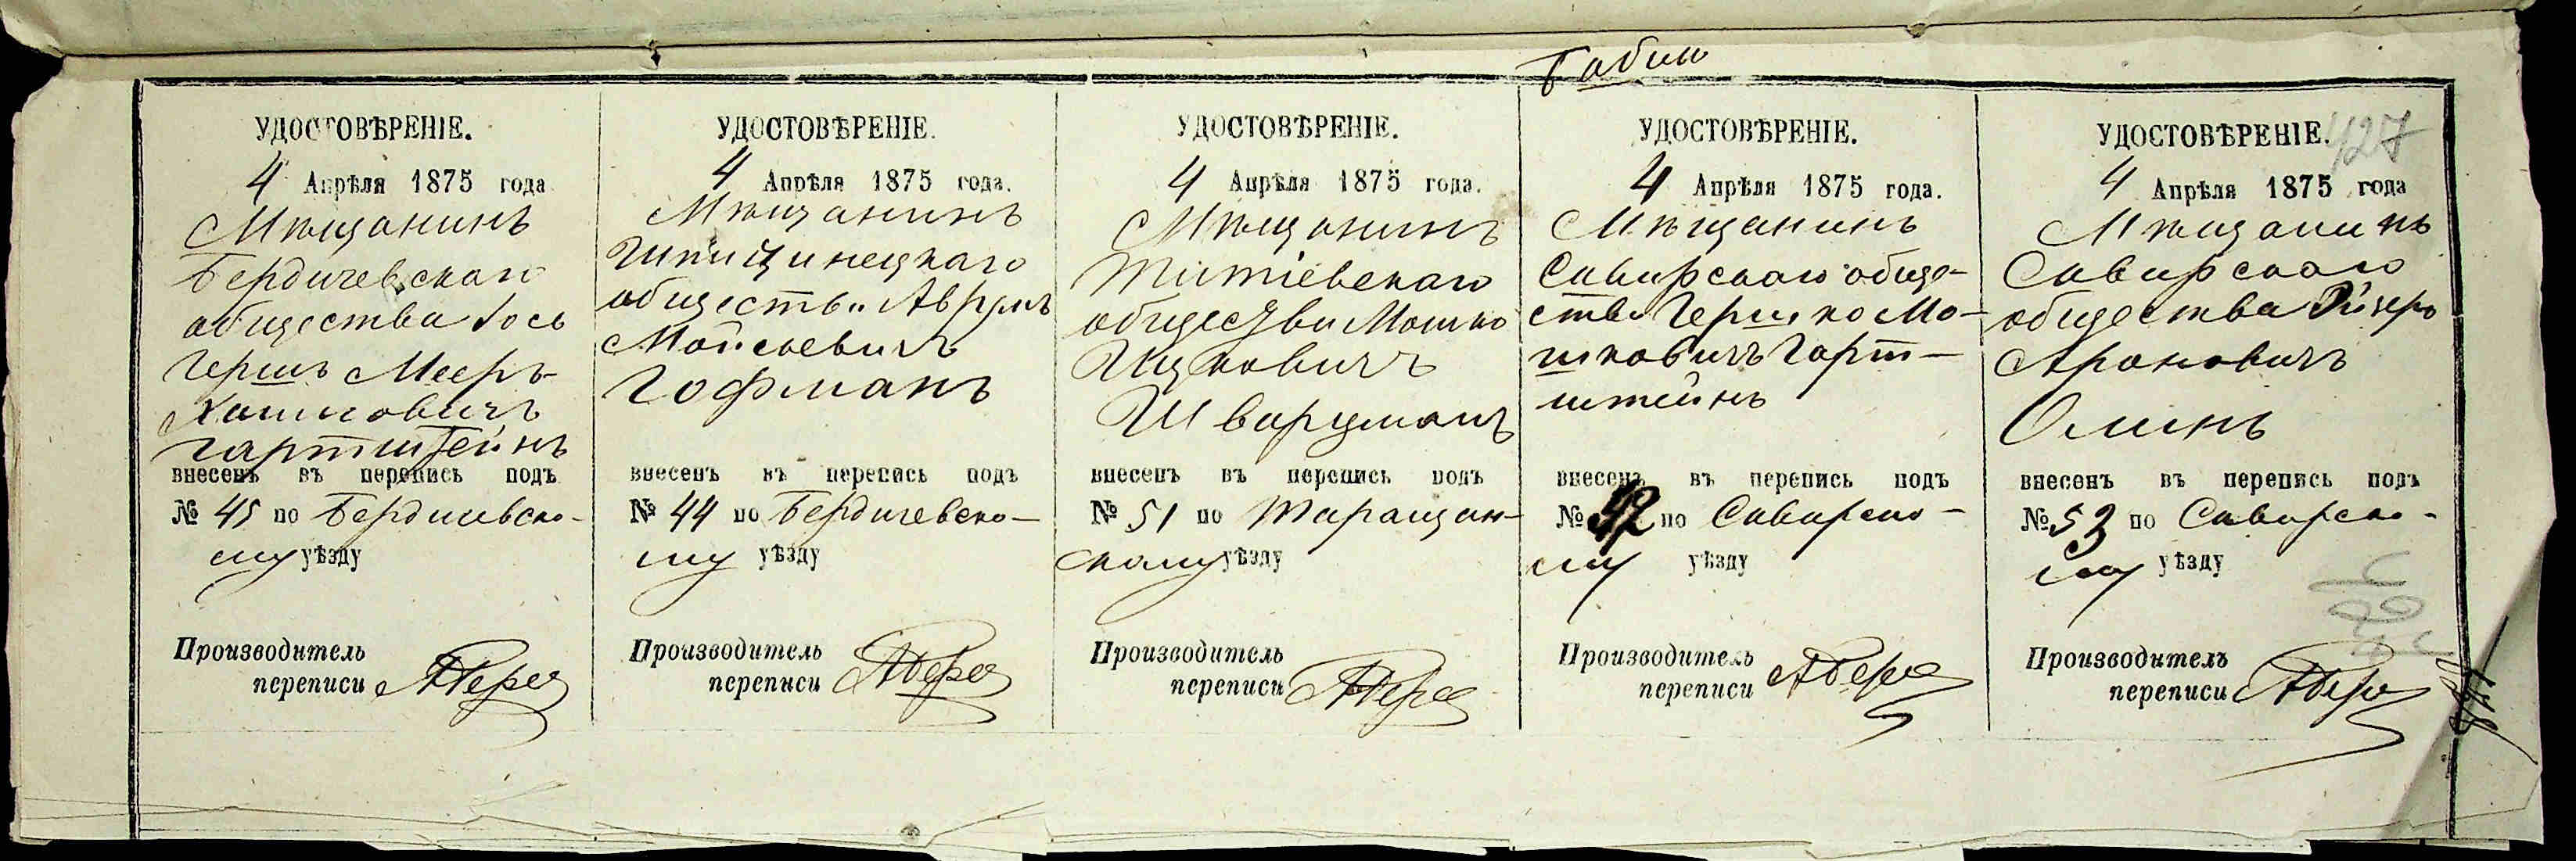 Бабин
УДОСТОВѢРЕНІЕ.
4 Апрѣля 1875 года
Мѣщанинъ
Бердичевскаго
общества Іось
Гершъ Мееръ-
Хаимовичъ
Гартштейнъ
внесенъ въ перепись подъ
№ 45 по Бердичевско-
му уѣзду
Производитель
переписи
УДОСТОВѢРЕНІЕ.
4 Апрѣля 1875 года.
Мѣщанинъ
общества Аврумъ
Мойсеевичъ
Гофманъ
внесенъ въ перепись подъ
№ 44 по Бердичевско-
му уѣзду
Производитель
переписи
УДОСТОВѢРЕНІЕ.
4 Апрѣля 1875 года.
Мѣщанинъ
Титіевскаго
общества Мошко
Ицковичъ
Шварцманъ
внесенъ въ перепись подъ
№ 51 по Таращан-
скому уѣзду
Производитель
переписи
УДОСТОВѢРЕНІЕ.
4 Апрѣля 1875 года.
Мѣщанинъ
Сквирскаго обще-
ства Гершко Мо-
шковичъ Гарт-
штейнъ
внесенъ въ перепись подъ
№ по Сквирско-
му уѣзду
Производитель
переписи
УДОСТОВѢРЕНІЕ.
127
4 Апрѣля 1875 года
Мѣщанинъ
Сквирскаго
общества
Ароновичъ
внесенъ въ перепись подъ
№ 53 по Сквирско-
му уѣзду
Производитель
переписи